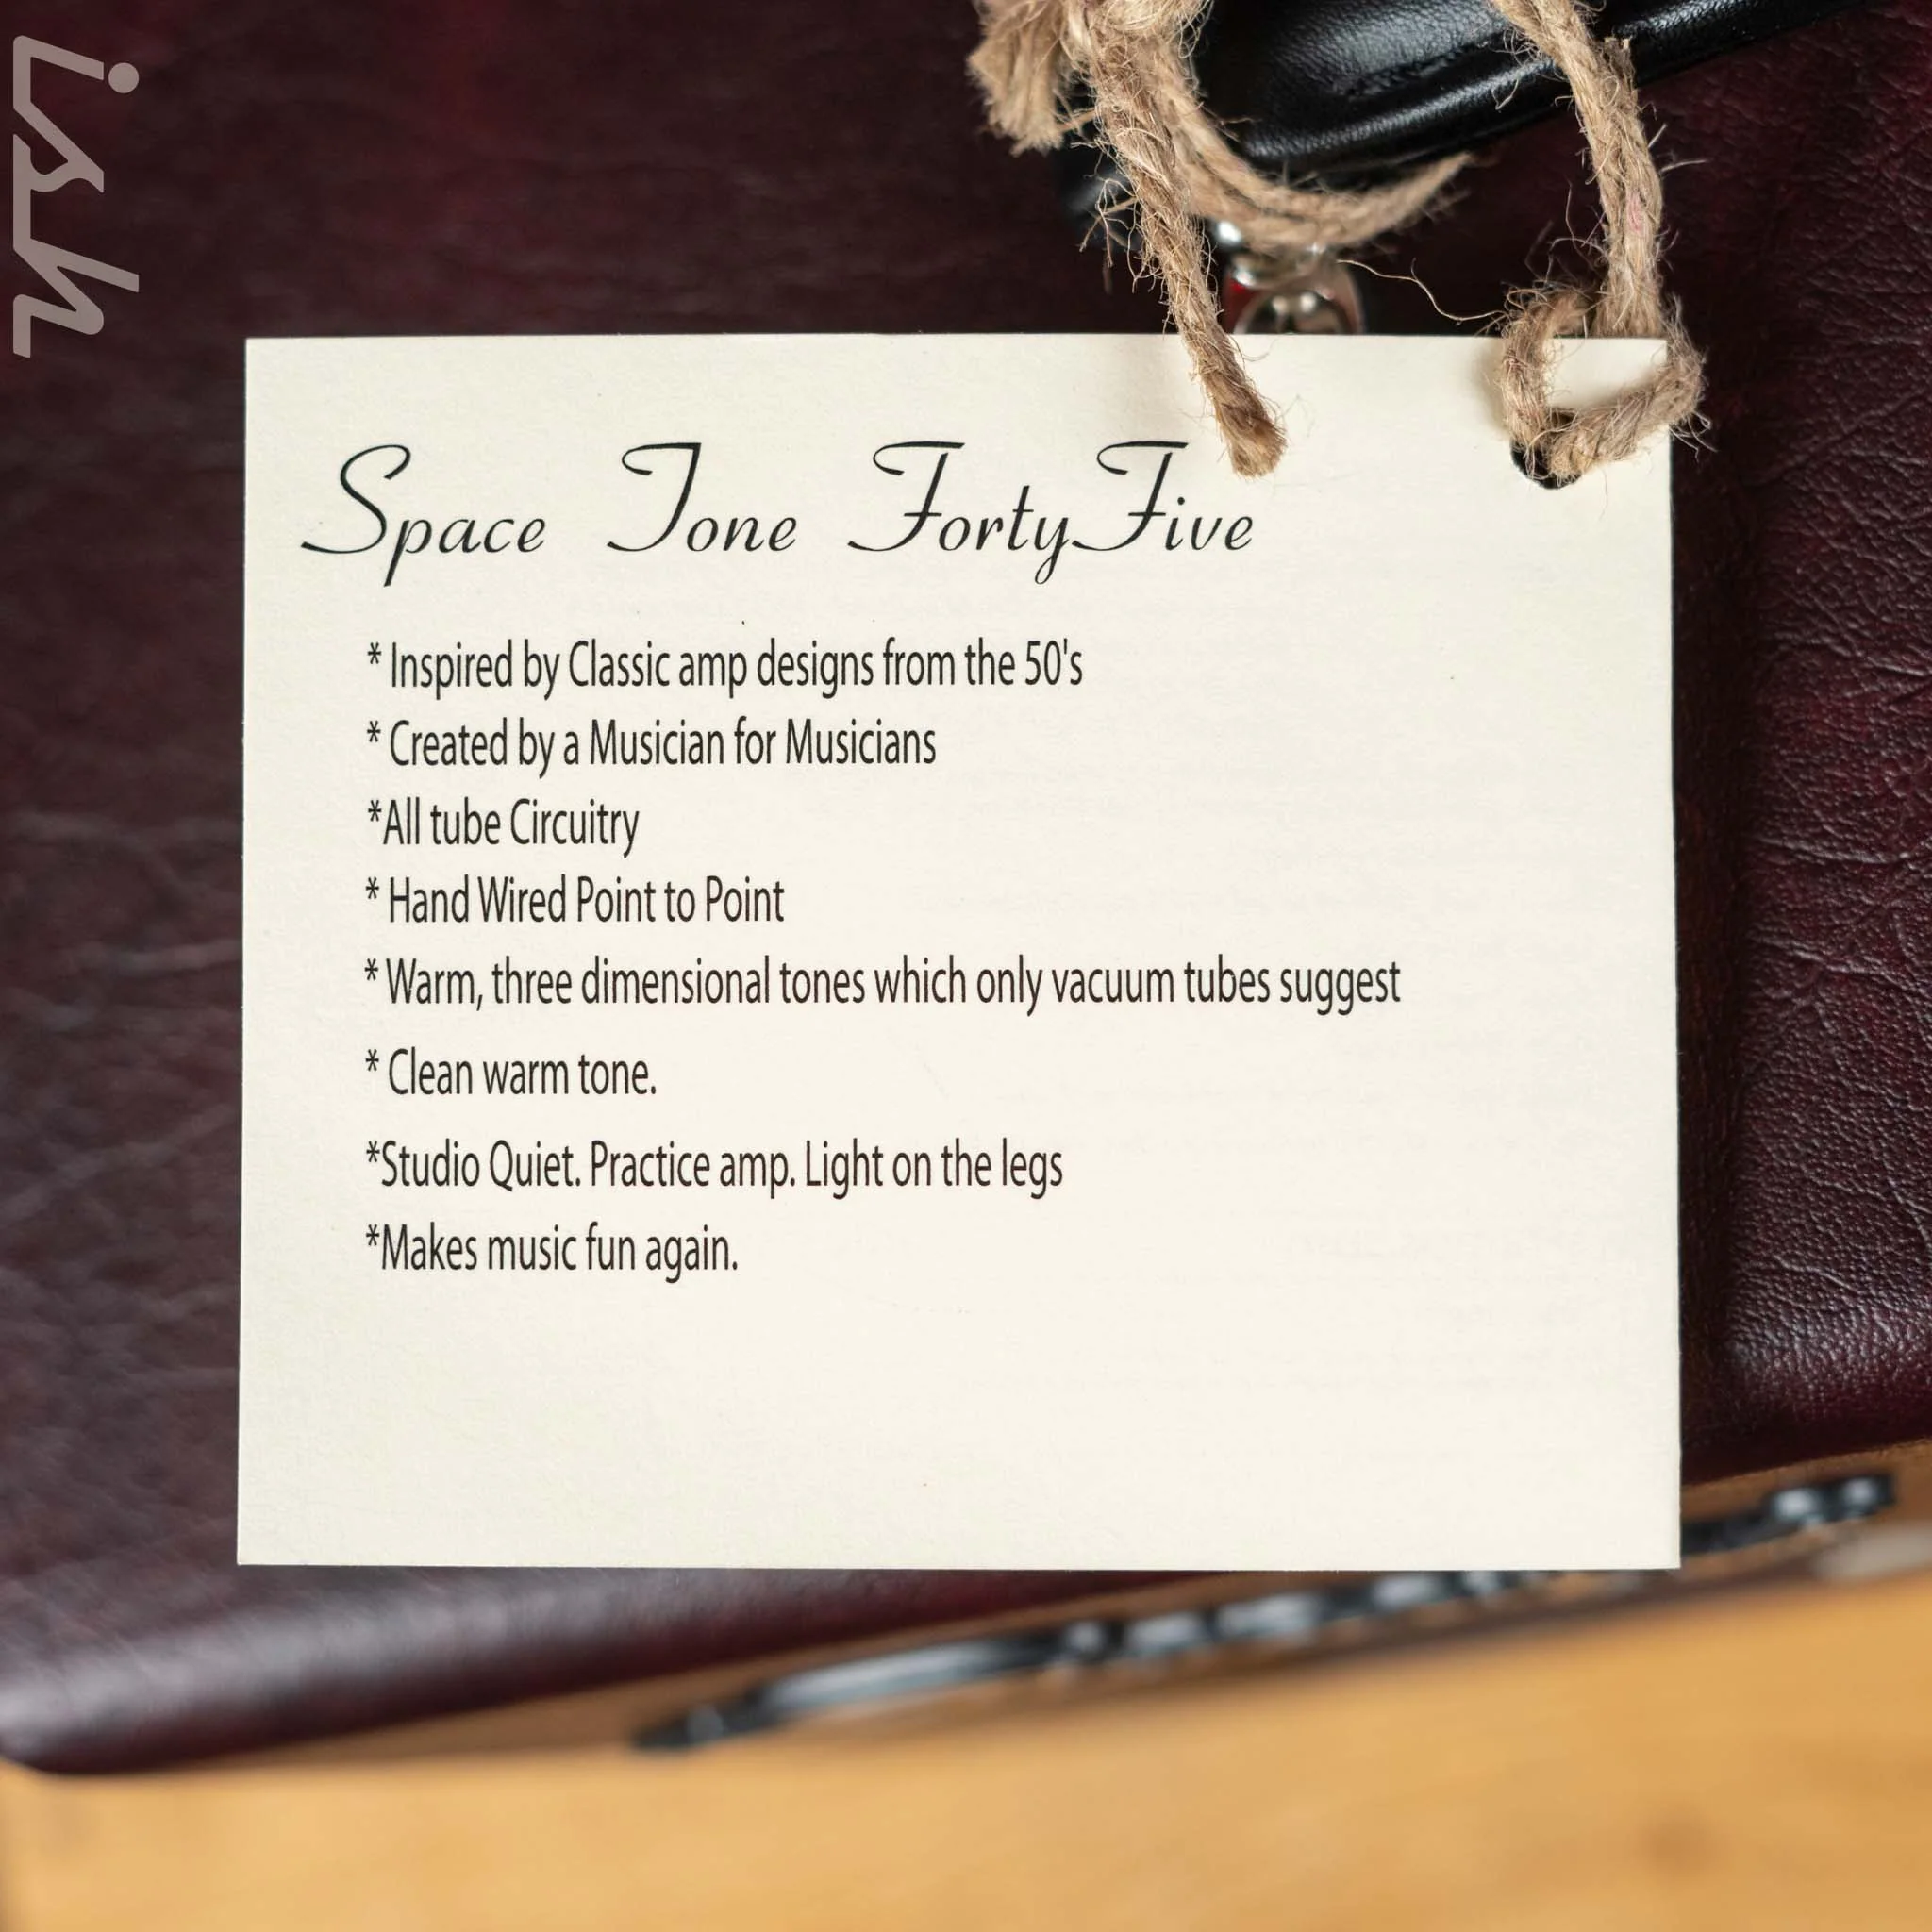 ish
Space Tone FortyFive
* Inspired by Classic amp designs from the 50's
* Created by a Musician for Musicians
*All tube Circuitry
* Hand Wired Point to Point
* Warm, three dimensional tones which only vacuum tubes suggest
* Clean warm tone.
*Studio Quiet. Practice amp. Light on the legs
*Makes music fun again.